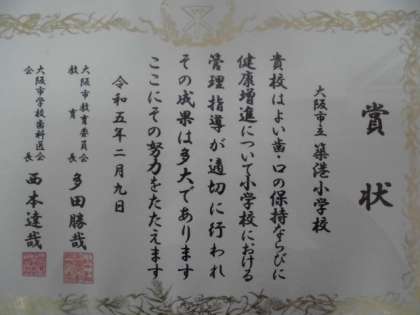 賞状
大阪市立 築港小学校
貴校はよい歯・口の保持ならびに
健康増進について小学校における
管理指導が適切に行われ
その成果は多大であります
ここにその努力をたたえます
令和五年二月九日
大阪市教育委員会
教育長 多田勝哉
大阪市学校歯科医会
会長 西本達哉